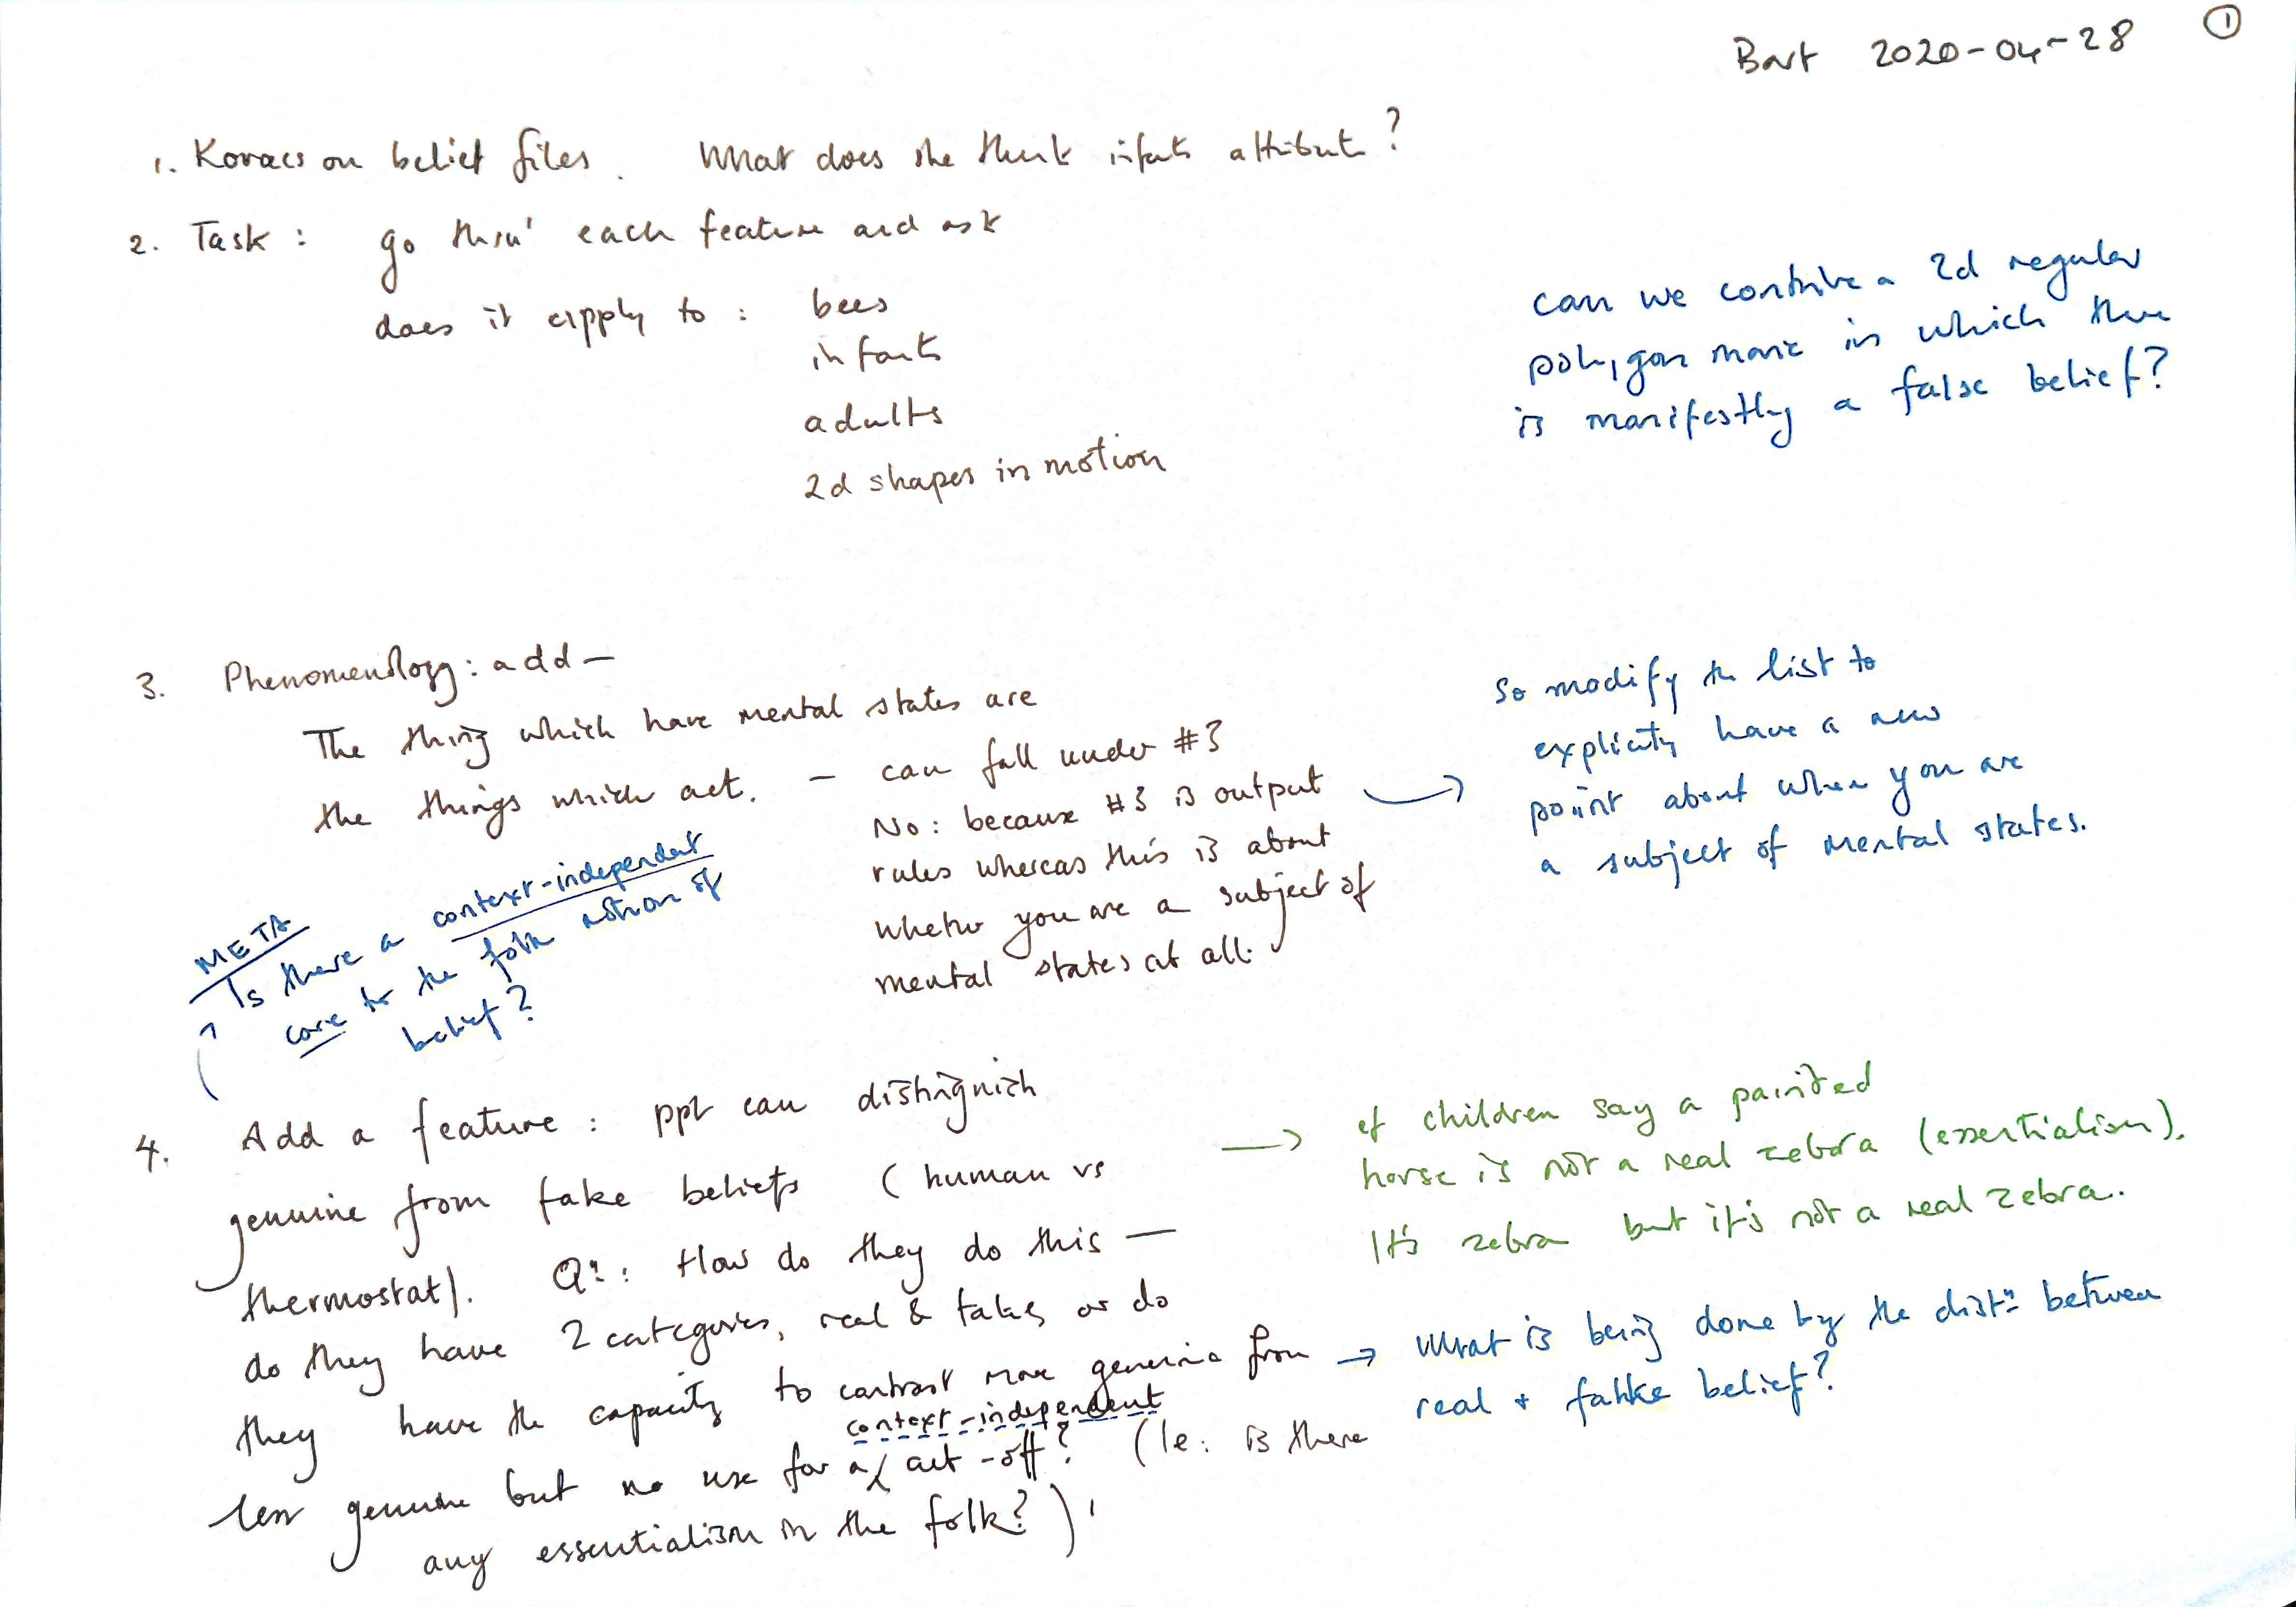 Bart 2020-04-28 ①
1. Kovacs on belief files. What does she think infants attribute?
2. Task: go thru' each feature and ask
does it apply to: bees
infants
adults
2d shapes in motion
can we contrive a 2d regular
polygon movie in which there
is manifestly a false belief?
3. Phenomenology: add—
The things which have mental states are
the things which act. — can fall under #3
No: because #3 is output
rules whereas this is about
whether you are a subject of
mental states at all.
So modify the list to
explicitly have a new
point about when you are
a subject of mental states.
META
Is there a context-independent
core to the folk notion of
belief?
4. Add a feature: ppl can distinguish
genuine from fake beliefs (human vs
thermostat). Qn: How do they do this —
do they have 2 categories, real & fake, or do
they have the capacity to contrast more genuine from
context-independent
less genuine but no use for a cut-off? (Ie: is there
any essentialism in the folk?)
cf children say a painted
horse is not a real zebra (essentialism).
It's zebra but it's not a real zebra.
What is being done by the distn between
real + fahke belief?